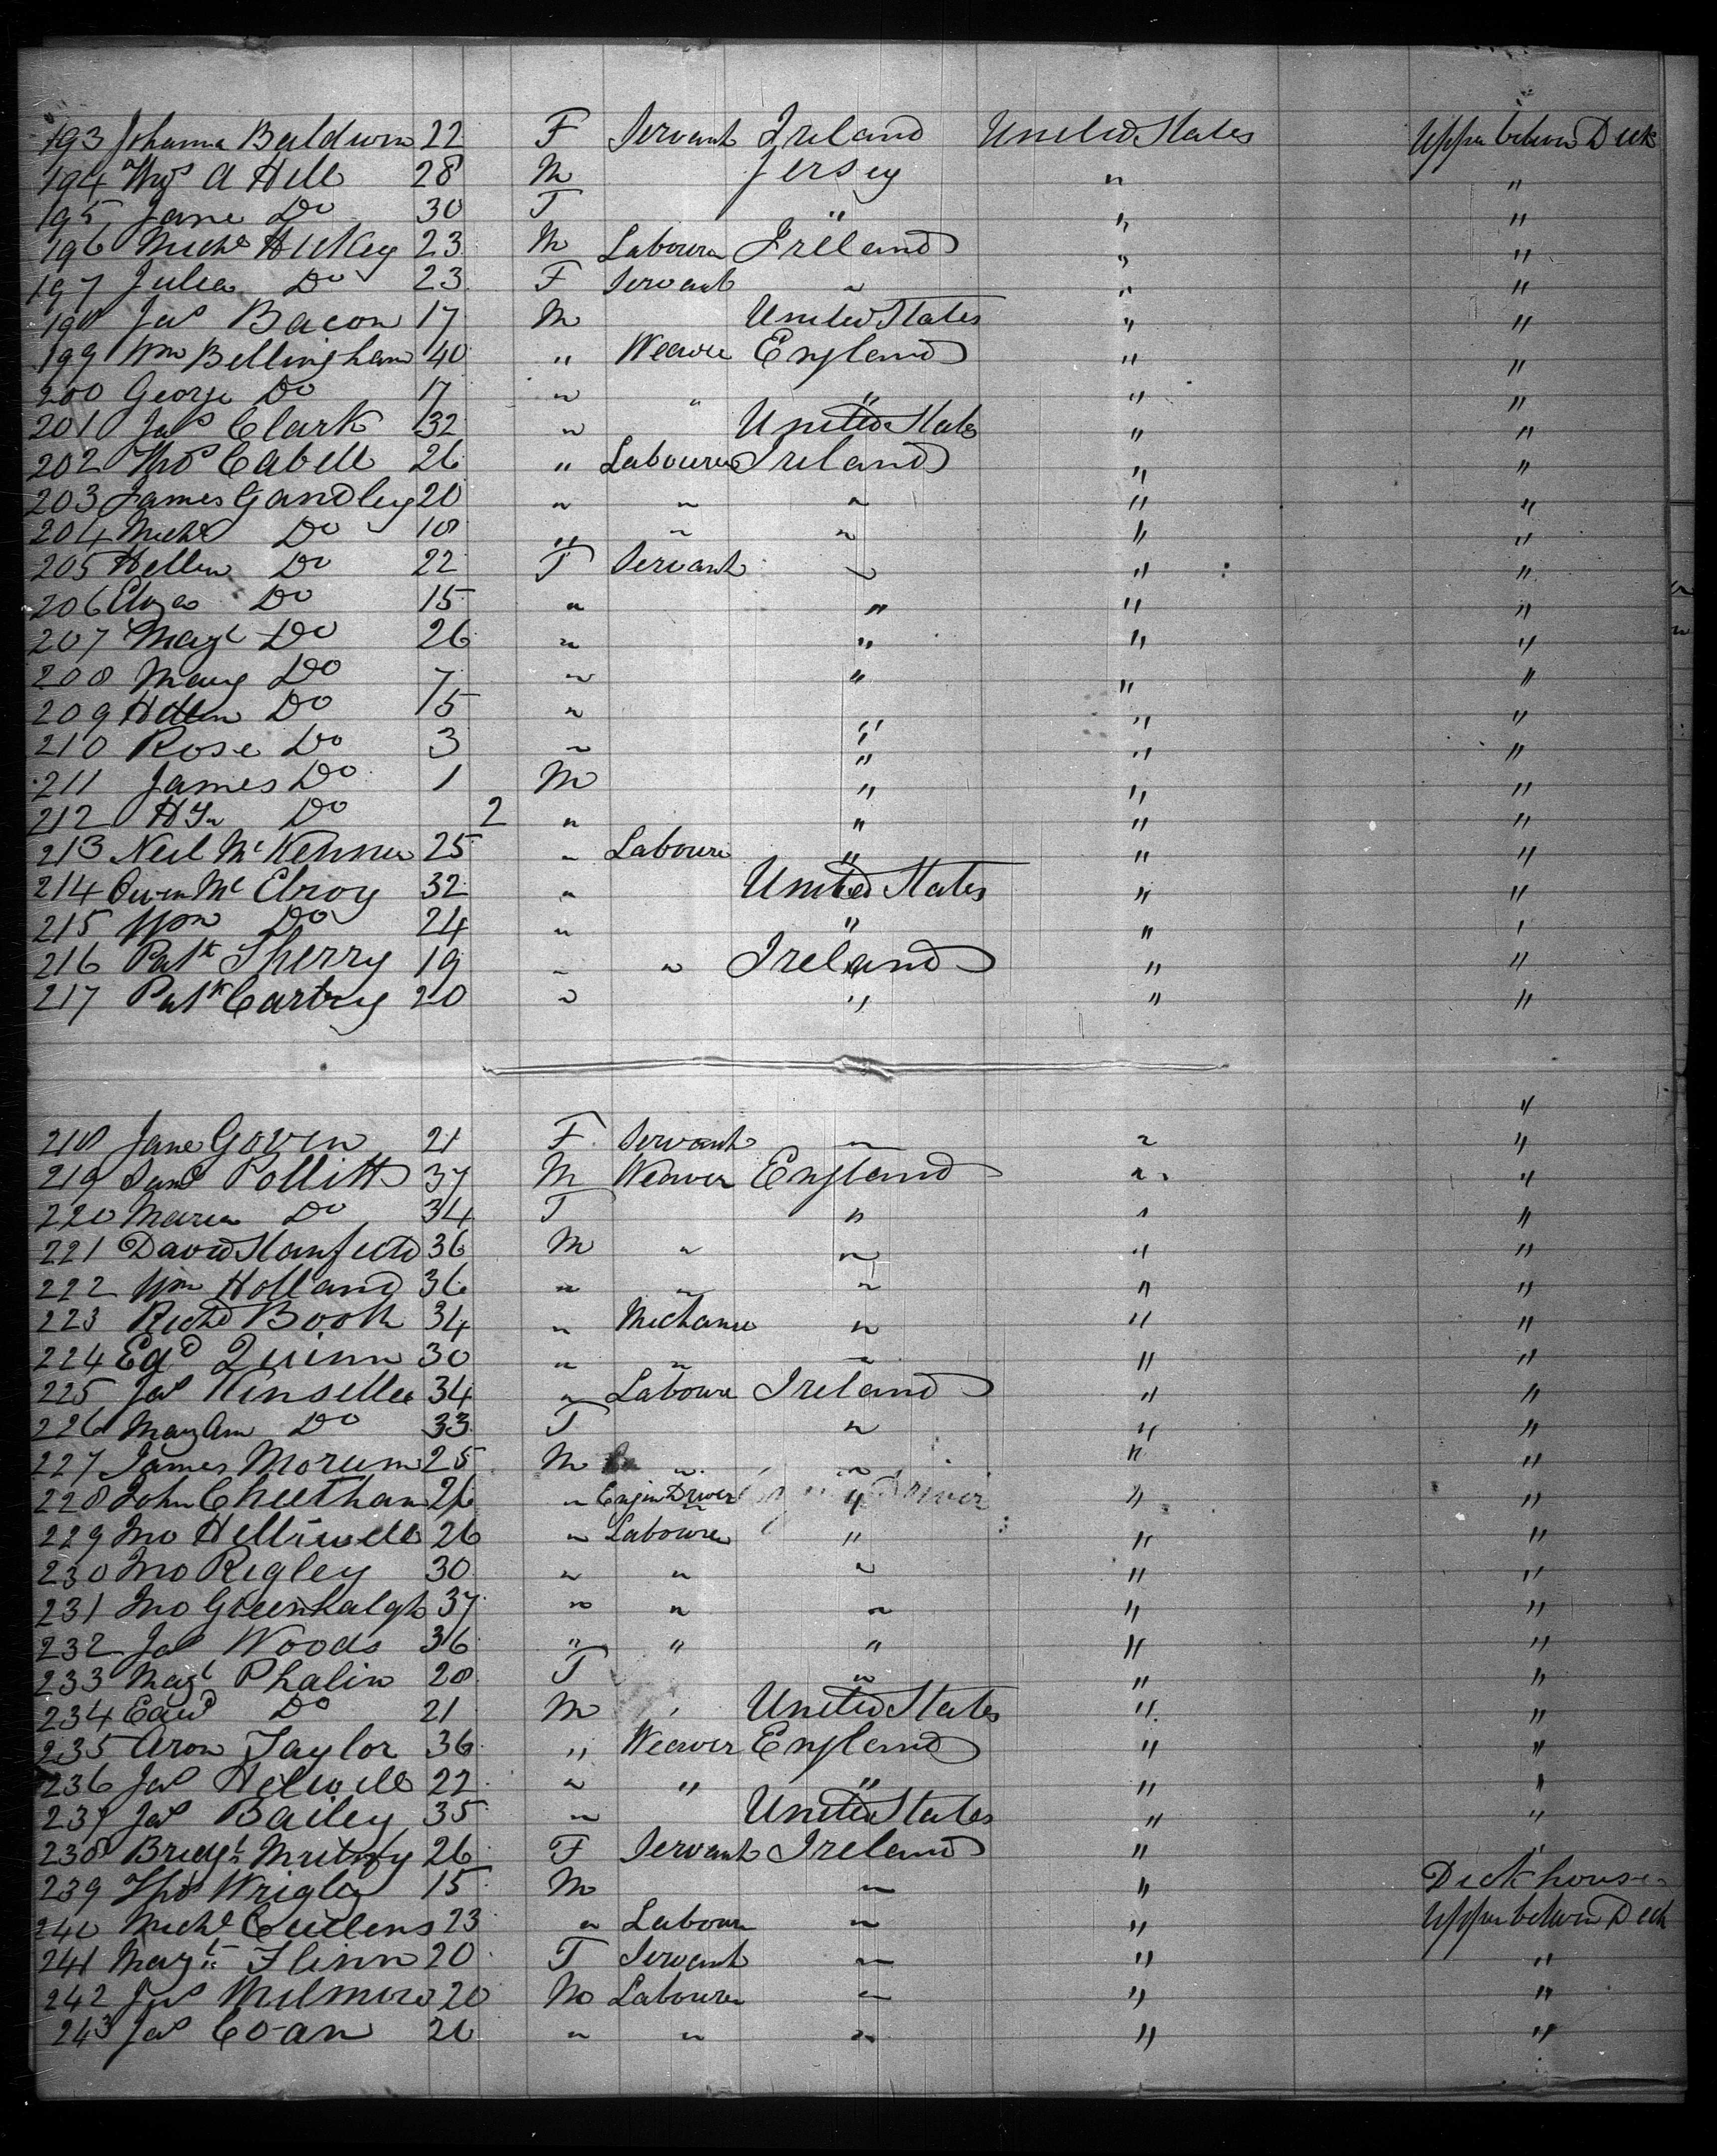 193 Johanna Baldwin 22 F Servant Ireland United States Upper between Deck
194 Thos A Hill 28 M Jersey " "
195 Jane Do 30 F " " "
196 Michl Hickey 23 M Labourer Ireland " "
197 Julia Do 23 F Servant " " "
198 Jas Bacon 17 M United States " "
199 Wm Bellingham 40 " Weaver England " "
200 George Do 17 " " " " "
201 Jas Clark 32 " United States " "
202 Thos Cabell 26 " Labourer Ireland " "
203 James Gandley 20 " " " " "
204 Michl Do 18 " " " " "
205 Hellen Do 22 F Servant " " "
206 Eliza Do 15 " " " "
207 Magt Do 26 " " " "
208 Mary Do 7 " " " "
209 Hellen Do 5 " " " "
210 Rose Do 3 " " " "
211 James Do 1 M " " "
212 Do 2 " " " "
213 Neil McKenna 25 " Labourer " " "
214 Owen McElroy 32 " United States " "
215 Wm Do 24 " " " "
216 Patk Sherry 19 " " Ireland " "
217 Patk Cartry 20 " " " "
"
218 Jane Govin 21 F Servant " " "
219 Saml Pollitt 37 M Weaver England " "
220 Maria Do 34 F " " "
221 David 36 M " " " "
222 Wm Holland 36 " " " " "
223 Richd Booth 34 " Mechanic " " "
224 Edd Quinn 30 " " " " "
225 Jas Kinsella 34 " Labourer Ireland " "
226 Mary Ann Do 33 F " " "
227 James Morum 25 M " " " "
228 John Cheetham 26 " Engin Driver " " "
229 Jno Helliwell 26 " Labourer " " "
230 Jno Rigley 30 " " " " "
231 Jno Greenhalgh 37 " " " " "
232 Jas Woods 36 " " " " "
233 Magt Phalin 20 F " " "
234 Edwd Do 21 M " United States " "
235 Aron Taylor 36 " Weaver England " "
236 Jas Heliwell 22 " " " " "
237 Jas Bailey 35 " United States " "
238 Bridgt 26 F Servant Ireland " "
239 Thos Wrigley 15 M " " Deck house
240 Michl Cullens 23 " Labourer " " Upper between Deck
241 Magt Flinn 20 F Servant " " "
242 Jas Milmoro 20 M Labourer " " "
243 Jas Coan 20 " " " " "